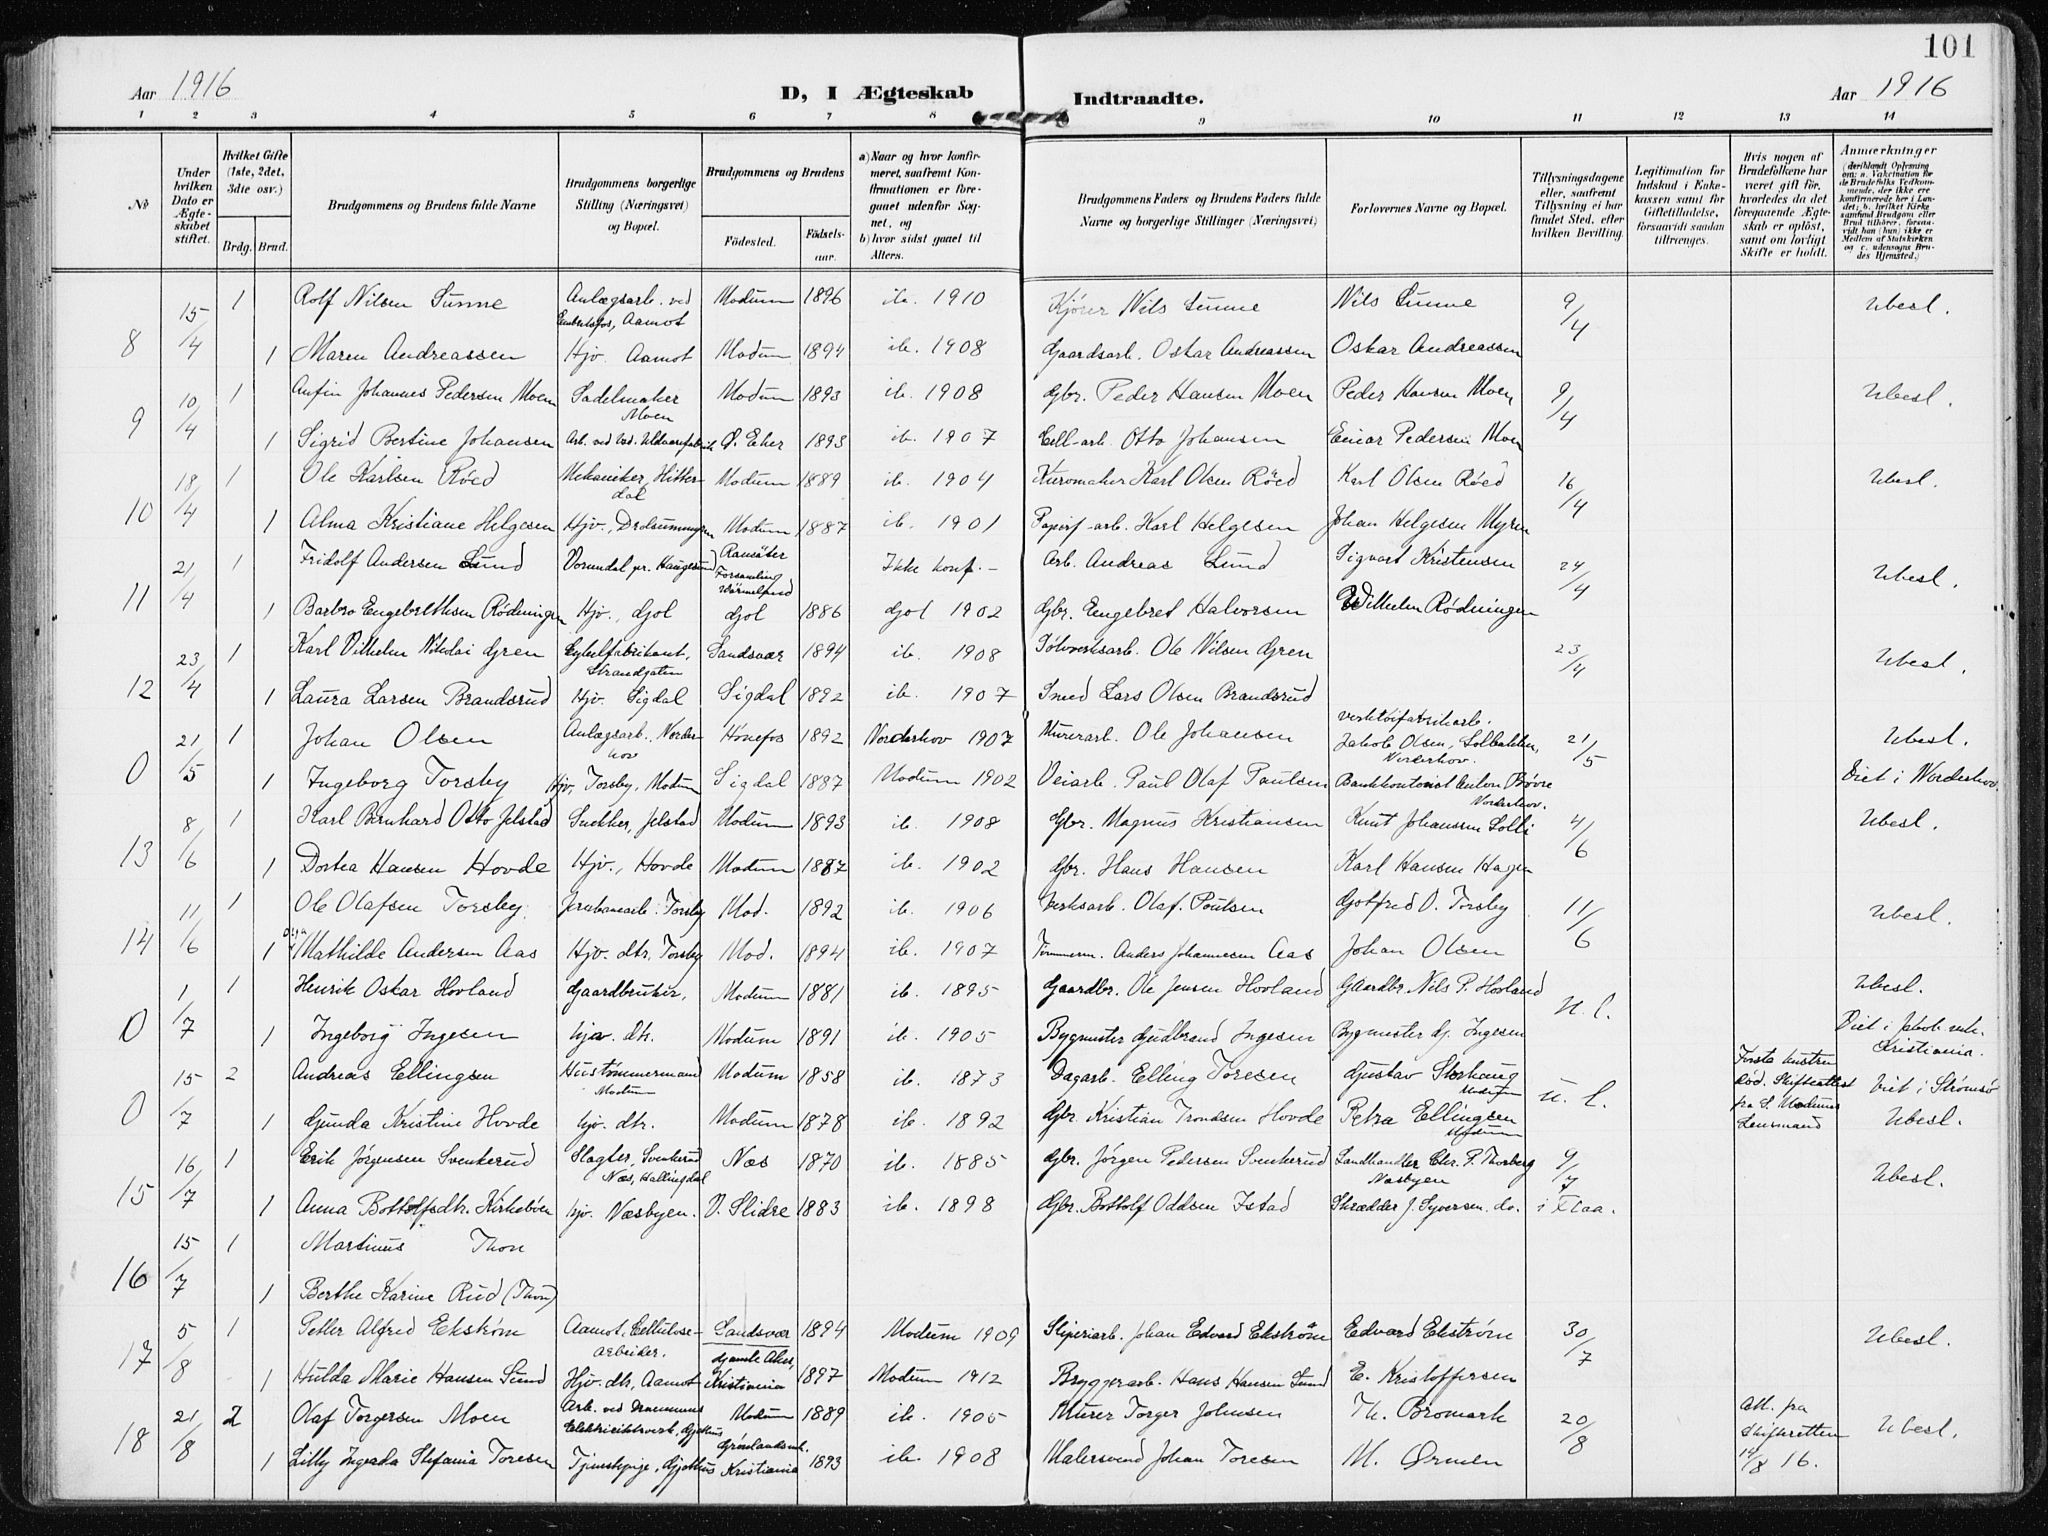 101
Aar 1916 D, I Ægteskab Indtraadte. Aar 1916
1 2 3 4 5 6 7 8 9 10 11 12 13 14
No
Under hvilken Dato er Ægteskabet stiftet.
Hvilket Gifte (1ste, 2det, 3dte osv.)
Brdg. Brud.
Brudgommens og Brudens fulde Navne
Brudgommens borgerlige Stilling (Næringsvei) og Bopæl.
Brudgommens og Brudens
Födested. Födselsaar.
a) Naar og hvor konfirmeret, saafremt Konfirmationen er foregaaet udenför Sognet, og
b) hvor sidst gaaet til Alters.
Brudgommens Faders og Brudens Faders fulde Navne og borgerlige Stillinger (Næringsvei)
Forlovernes Navne og Bopæl.
Tillysningsdagene eller, saafremt Tillysning ei har fundet Sted, efter hvilken Bevilling.
Legitimation for Indskud i Enkekassen samt for Giftetilladelse, forsaavidt saadan tiltrænges.
Hvis nogen af Brudefolkene har været gift för, hvorledes da det foregaaende Ægteskab er oplöst, samt om lovligt Skifte er holdt.
Anmærkninger
(deriblandt Oplysning om: a. Vakcination for de Brudefolks Vedkommende, der ikke ere konfirmerede her i Landet; b. hvilket Kirkesamfund Brudgom eller Brud tilhörer, forsaavidt han (hun) ikke er Medlem af Statskirken og c. udensogns Brudes Hjemsted.)
8 15/4 1 Rolf Nilsen Sunne Anlægsarb. ved Embretsfos, Aamot Modum 1896 ib. 1910 Kjörer Nils Sunne Nils Sunne 9/4 Ubesl.
1 Maren Andreassen Hjv. Aamot Modum 1894 ib. 1908 Gaardsarb. Oskar Andreassen Oskar Andreassen
9 10/4 1 Anfin Johannes Pedersen Moen Sadelmaker Moen Modum 1893 ib. 1908 Gbr. Peder Hansen Moen Peder Hansen Moen 9/4 Ubesl.
1 Sigrid Bertine Johansen Arb. ved Uldvarefabrik Ø. Eker 1893 ib. 1907 Cell-arb. Otto Johansen Einar Pedersen Moen
10 18/4 1 Ole Karlsen Røed Mekaniker, Hitterdal Modum 1889 ib. 1904 Kurvmaker Karl Olsen Røed Karl Olsen Røed 16/4 Ubesl.
1 Alma Kristiane Helgesen Hjv., Modum 1887 ib. 1901 Papirf-arb. Karl Helgesen Johan Helgesen Myren
11 21/4 1 Fridolf Andersen Lund Ransäter Forsamling Värmland Ikke konf. - Arb. Andreas Lund Sigvart Kristensen 24/4 Ubesl.
1 Barbro Engebrethsen Rødningen Hjv., Gjol Gjol 1886 Gjol 1902 Gbr. Engebret Halvorsen Wilhelm Rødningen
12 23/4 1 Karl Vilhelm Nikolai Gren Strandgaten Sandsvær 1894 ib. 1908 Sølvverksarb. Ole Nilsen Gren 23/4 Ubesl.
1 Laura Larsen Brandsrud Hjv. Sigdal Sigdal 1892 ib. 1907 Smed Lars Olsen Brandsrud
0 21/5 1 Johan Olsen Anlægsarb. Norderhov Hönefos 1892 Norderhov 1907 Murerarb. Ole Johansen Verktøifabrikarb. Jakob Olsen, Solbakken, Norderhov. 21/5 Ubesl.
1 Ingeborg Torsby Hjv, Torsby, Modum Sigdal 1887 Modum 1902 Veiarb. Paul Olaf Paulsen Bankkontorist Anton Norderhov. Viet i Norderhov.
13 8/6 1 Karl Bernhard Otto Jelstad Snekker, Jelstad Modum 1893 ib. 1908 Gbr. Magnus Kristiansen Knut Johansen Solli 4/6 Ubesl.
1 Dortea Hansen Hovde Hjv., Hovde Modum 1887 ib. 1902 Gbr. Hans Hansen Karl Hansen Hagen
14 11/6 1 Ole Olafsen Torsby. Jernbanearb. Torsby Mod. 1892 ib. 1906 Verksarb. Olaf. Poulsen Gotfred O. Torsby 11/6 Ubesl.
1 Mathilde Andersen Aas Hjv. dtr. Torsby Mod. 1894 ib. 1907 Tømmerm. Anders Johannesen Aas Johan Olsen
0 1/7 1 Henrik Oskar Hovland Gaardbruker, Modum 1881 ib. 1895 Gaardbr. Ole Jensen Hovland Gaardbr. Nils P. Hovland u. l. Ubesl.
1 Ingeborg Ingesen hjv. dtr. Modum 1891 ib. 1905 Bygmester Gudbrand Ingesen Bygmester Gj. Ingesen Viet i Jakob menh. Kristiania.
0 15/7 2 Andreas Ellingsen Hustømmermand Modum Modum 1858 ib. 1873 Dagarb. Elling Toresen Gustav Storhaug Modum u. l. Første hustru død. Skifteattest fra S. Modums Lensmand Viet i Strømsø
1 Gunda Kristine Hovde hjv. dtr. Modum 1878 ib. 1892 Gbr. Kristian Trondsen Hovde Petra Ellingsen Modum Ubesl.
15 16/7 1 Erik Jørgensen Svenkerud Slagter, Svenkerud Næs, Hallingdal Næs 1870 ib. 1885 Gbr. Jørgen Pedersen Svenkerud Landhandler Chr. P. Thorberg Næsbyen 9/7 Ubesl.
1 Anna Bottolfsdtr. Kirkebøen hjv. Næsbyen. V. Slidre 1883 ib. 1898 Gbr. Bottolf Oddsen Istad Skrædder J. Syversen. do. i Flaa.
16 15/7 1 Martinus Thon
1 Berthe Karine Rud (Thon)
17 5/8 1 Petter Alfred Ekstrøm Aamot, Cellulosearbeider. Sandsvær 1894 Modum 1909 Sliperiarb. Johan Edvard Ekstrøm Edvard Ekstrøm 30/7 Ubesl.
1 Hulda Marie Hansen Sund Hjv. dtr, Aamot Gamle Aker, Kristiania 1897 Modum 1912 Bryggerarb. Hans Hansen Sund E. Kristoffersen
18 21/8 2 Olaf Torgersen Moen Arb. ved Drammens Elektricitetsverk, Gjethus Modum 1889 ib. 1905 Murer Torger Johnsen Th. Bromark 20/8 Att. fra Skifteretten 14/8 16. Ubesl.
1 Lilly Ingeada Stefania Toresen Tjenestepige, Gjethus Grønlandsmh. Kristiania 1893 ib. 1908 Malersvend Johan Toresen M. Ormen